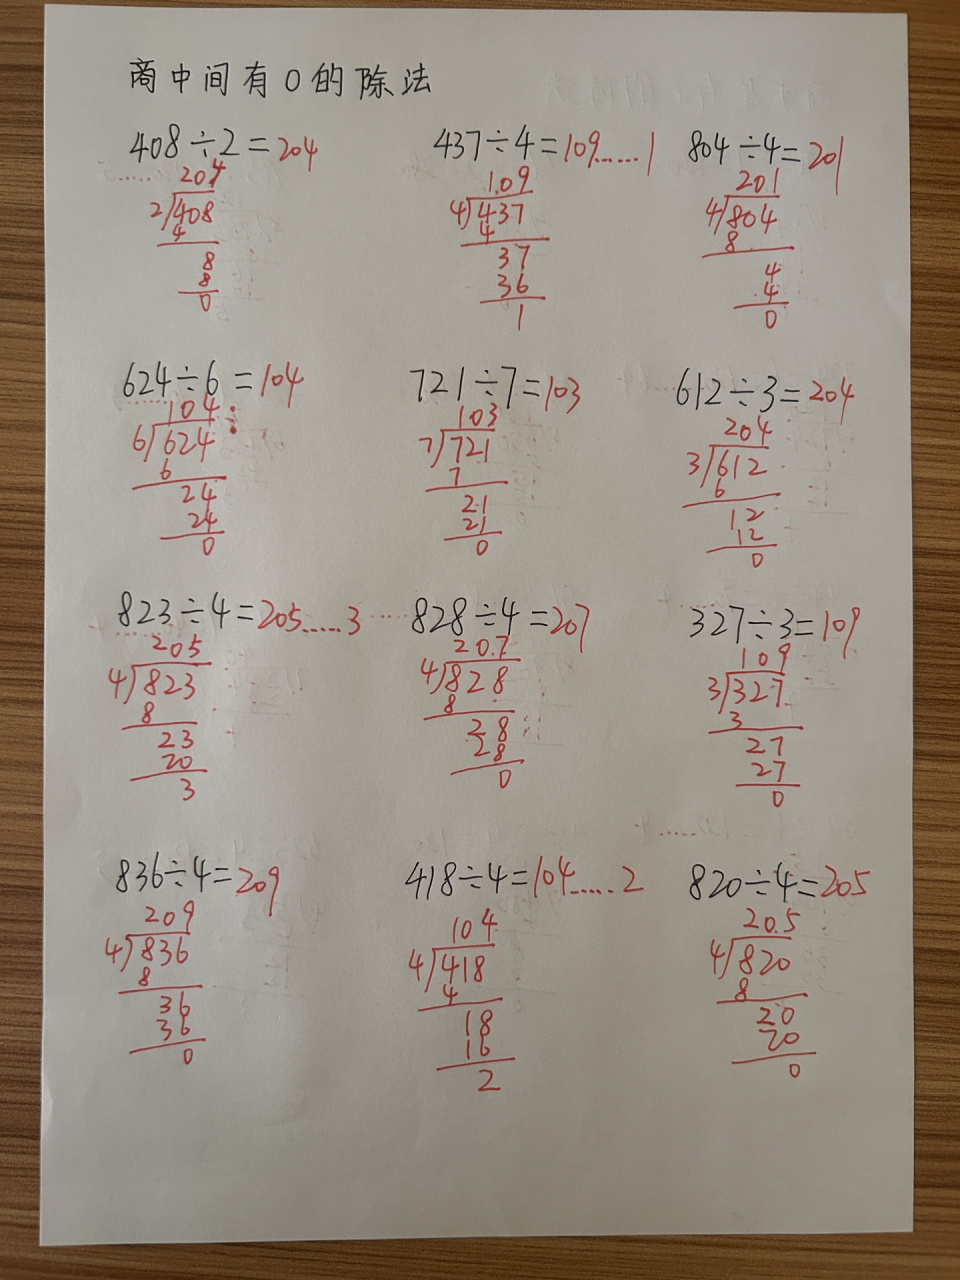 商中间有0的除法
408÷2=204 437÷4=109……1 804÷4=201
204 109 201
2/408 4/437 4/804
4 4 8
8 37 4
8 36 4
0 1 0
624÷6=104 721÷7=103 612÷3=204
104 103 204
6/624 7/721 3/612
6 7 6
24 21 12
24 21 12
0 0 0
823÷4=205……3 828÷4=207 327÷3=109
205 207 109
4/823 4/828 3/327
8 8 3
23 28 27
20 28 27
3 0 0
836÷4=209 418÷4=104……2 820÷4=205
209 104 205
4/836 4/418 4/820
8 4 8
36 18 20
36 16 20
0 2 0